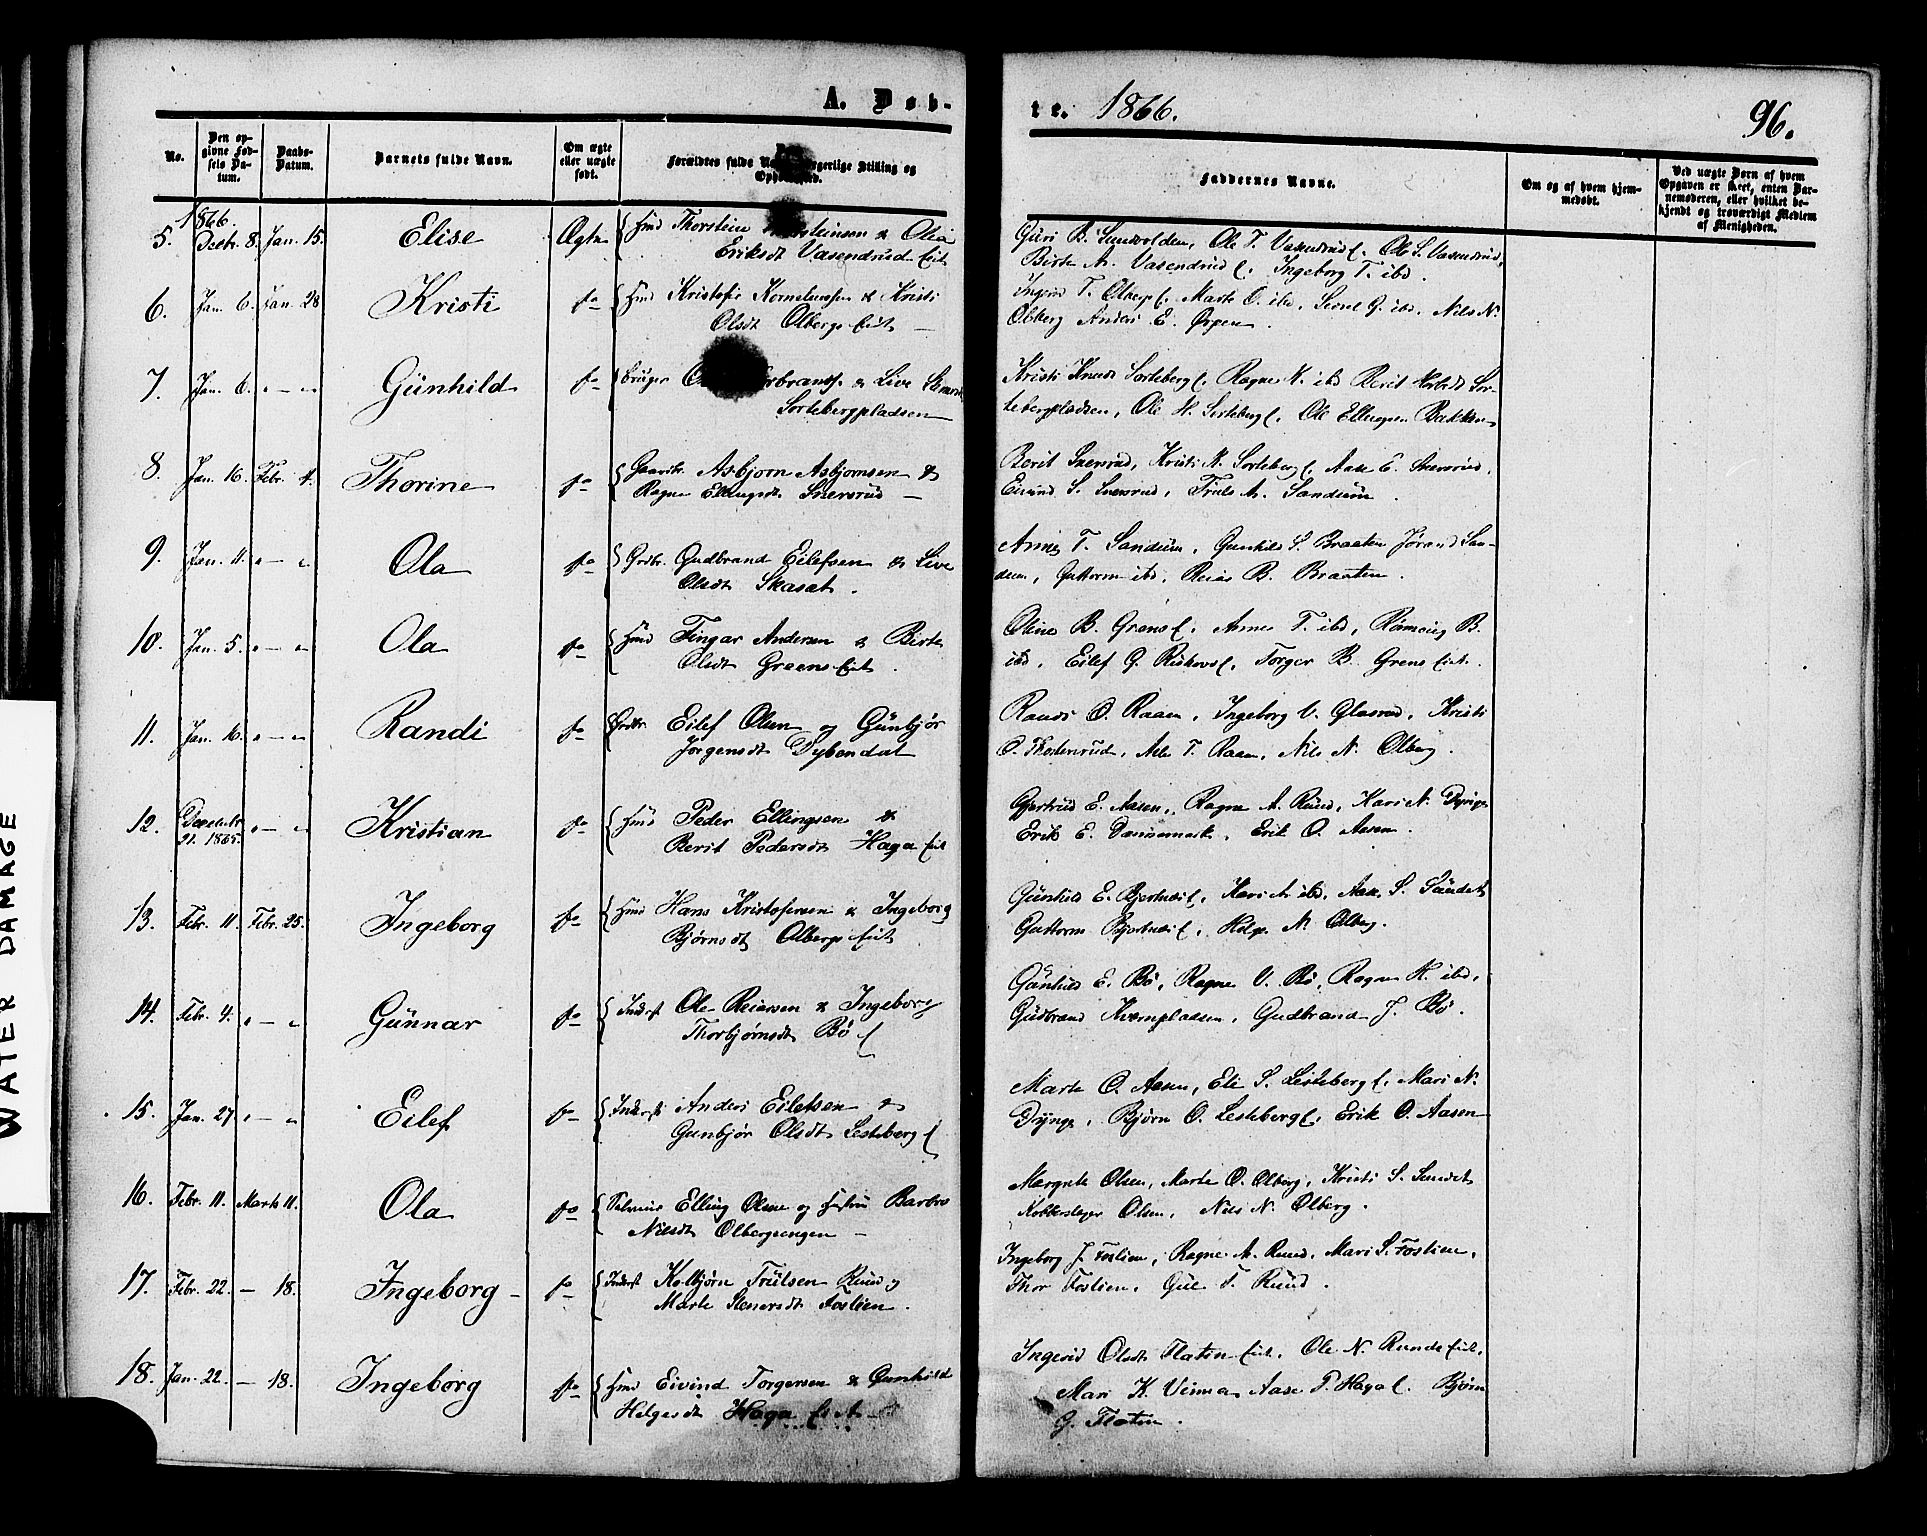 A. Døb-
te. 1866. 96.
No.
Den op-
givne Fød-
sels Da-
tum.
Daabs-
Datum.
Barnets fulde Navn.
Om ægte
eller uægte
født.
Forældres fulde Stilling og
Faddernes Navne.
Om og af hvem hjem-
medøbt.
Ved uægte Børn af hvem
Opgaven er skeet, enten Bar-
nemoderen, eller hvilket be-
kjendt og troværdigt Medlem
af Menigheden.
1866.
5. Decbr. 8. Jan. 15. Elise Ægte Hmd Thorstein & Olia
Eriksdt Vasendrud eiet
Guri B. Sundvolden, Ole T. Vasendrud e. Ole S. Vasendrud,
Birte A. Vasendrud e. Ingeborg T. ibd.
6. Jan. 6. Jan. 28 Kristi do Hmd Kristofer Korneliussen & Kristi
Olsdt Olbergs eiet —
Ingrid T. Olberg e. Marte O. ibd, G. ibd. Nils N.
Olberg Anders E. Ørpen.
7. Jan. 6. " — " Günhild do bruger & Live
Sortebergpladsen
Kristi Knuds Sorteberg e. Ragne K. ibd Berit Sor-
tebergpladsen, Ole H. Sorteberg e. Ole Ellingsen Bakken
8. Jan. 16. Febr. 4. Thorine do Gaardbr Asbjørn Asbjørnsen &
Ragne Ellingsdt Snersrud —
Berit Snersrud, Kristi K. Sorteberg e. Aase E. Snersrud,
Eivind S. Snersrud, Truls A. Sandum.
9. Jan. 11. " — " Ola do Grdbr. Gudbrand Eilefsen & Live
Olsdt Skasat.
Anne T. Sandum, Gunhild S. Braaten Jørand San-
dum, Guttorm ibd, Reiar B. Braaten.
10. Jan. 5. " — " Ola do Hmd Fingar Andersen & Birte
Olsdt Grøens eiet.
Oline B. Grøns e. Anne T. ibd, B.
ibd. Eilef G. e. Torger B. Grøns eiet.
11. Jan. 16. " — " Randi do Grdbr. Eilef Olsen og Günbjør
Jørgensdt Dybendal
Randi O. Raaen, Ingeborg U. Glasrud, Kristi
O. Asle T. Raaen, Nils N. Olberg.
12. Decembr.
21. 1865. " — " Kristian do Hmd Peder Ellingsen &
Berit Pedersdt Haga eiet
Gjertrud E. Aasen, Ragne A. Ruud, Kari N. Dynge
Erik E. Dannemark, Erik O. Aasen.
13. Febr. 11. Febr. 25. Ingeborg do Hmd Hans Kristofersen & Ingeborg
Bjørnsdt Olbergs eiet
Günhild E. Bjertnæs e, Kari A. ibd. Aase S. Sündet
Guttorm Bjertnæs e, Helge N. Olberg.
14. Febr. 4. " — " Günnar do Inderst Ole Reiersen & Ingeborg
Thorbjørnsdt Bø e
Günhild E. Bø, Ragne U. Bø, Ragne K. ibd,
Gudbrand Kvernpladsen, Gudbrand J. Bø.
15. Jan. 27. " — " Eilef do Inderst Anders Eilefsen &
Gunbjør Olsdt Lesteberg e
Marte O. Aasen, Eli S. Lesteberg e. Mari N.
Dynge, Bjørn O. Lesteberg e. Erik O. Aasen
16. Febr. 11. Marts 11. Ola do Elling Olsen og Hustru Barbro
Nilsdt Olbergsengen —
Margrete Olsen, Marte O. Olberg, Kristi S. Sundet
Kobberslager Olsen, Nils N. Olberg.
17. Febr. 22. — 18. Ingeborg do Inderst Kolbjørn Trulsen Ruud og
Marte Stenersdt Foslien.
Ingeborg J. Foslien, Ragne A. Ruud, Mari S. Foslien,
Thor Foslien, Gul T. Ruud.
18. Jan. 22. — 18. Ingeborg do Hmd Eivind Torgersen & Gunhild
Helgesdt Haga eiet —
Ingerid Olsdt Flaten eiet, Ole N. Ruuds eiet,
Mari K. Aase P. Haga e. Bjørn
G. Flaten.
WATER DAMAGE